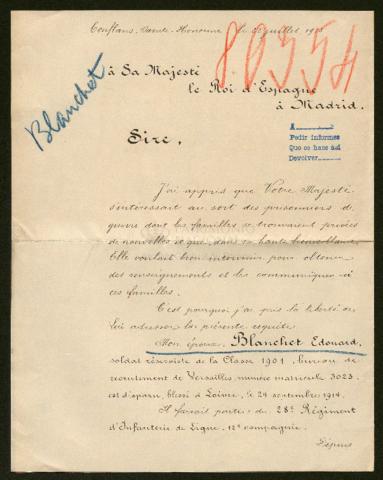 Conflans-Sainte-Honorine le juillet 1915
8.0354
Blanchet
à Sa Majesté
le Roi d'Espagne
à Madrid.
Sire,
A
Pedir informes
Que se hace así
Devolver
J'ai appris que Votre Majesté
s'intéressait au sort des prisonniers de
guerre dont les familles se trouvaient privées
de nouvelles et que, dans sa haute bienveillance,
Elle voulait bien intervenir pour obtenir
des renseignements et les communiquer à
ces familles.
C'est pourquoi j'ai pris la liberté de
lui adresser la présente requête
Mon époux, Blanchet Edouard,
soldat réserviste de la Classe 1901, bureau de
recrutement de Versailles, numéro matricule 3023
est disparu, blessé à Loivre, le 24 septembre 1914.
Il faisait partie du 28e Régiment
d'Infanterie de Ligne, 12e compagnie.
Depuis